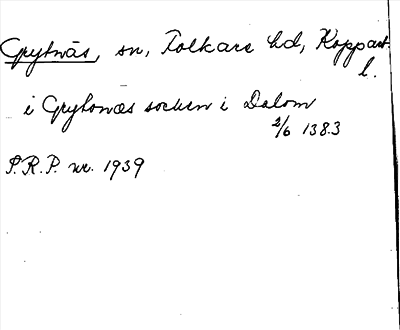 Grytnäs, sn, Folkare hd, Kopparb.
l.
i Grytonæs socken i Dalom
2/6 1383
P.R.P. nr. 1939